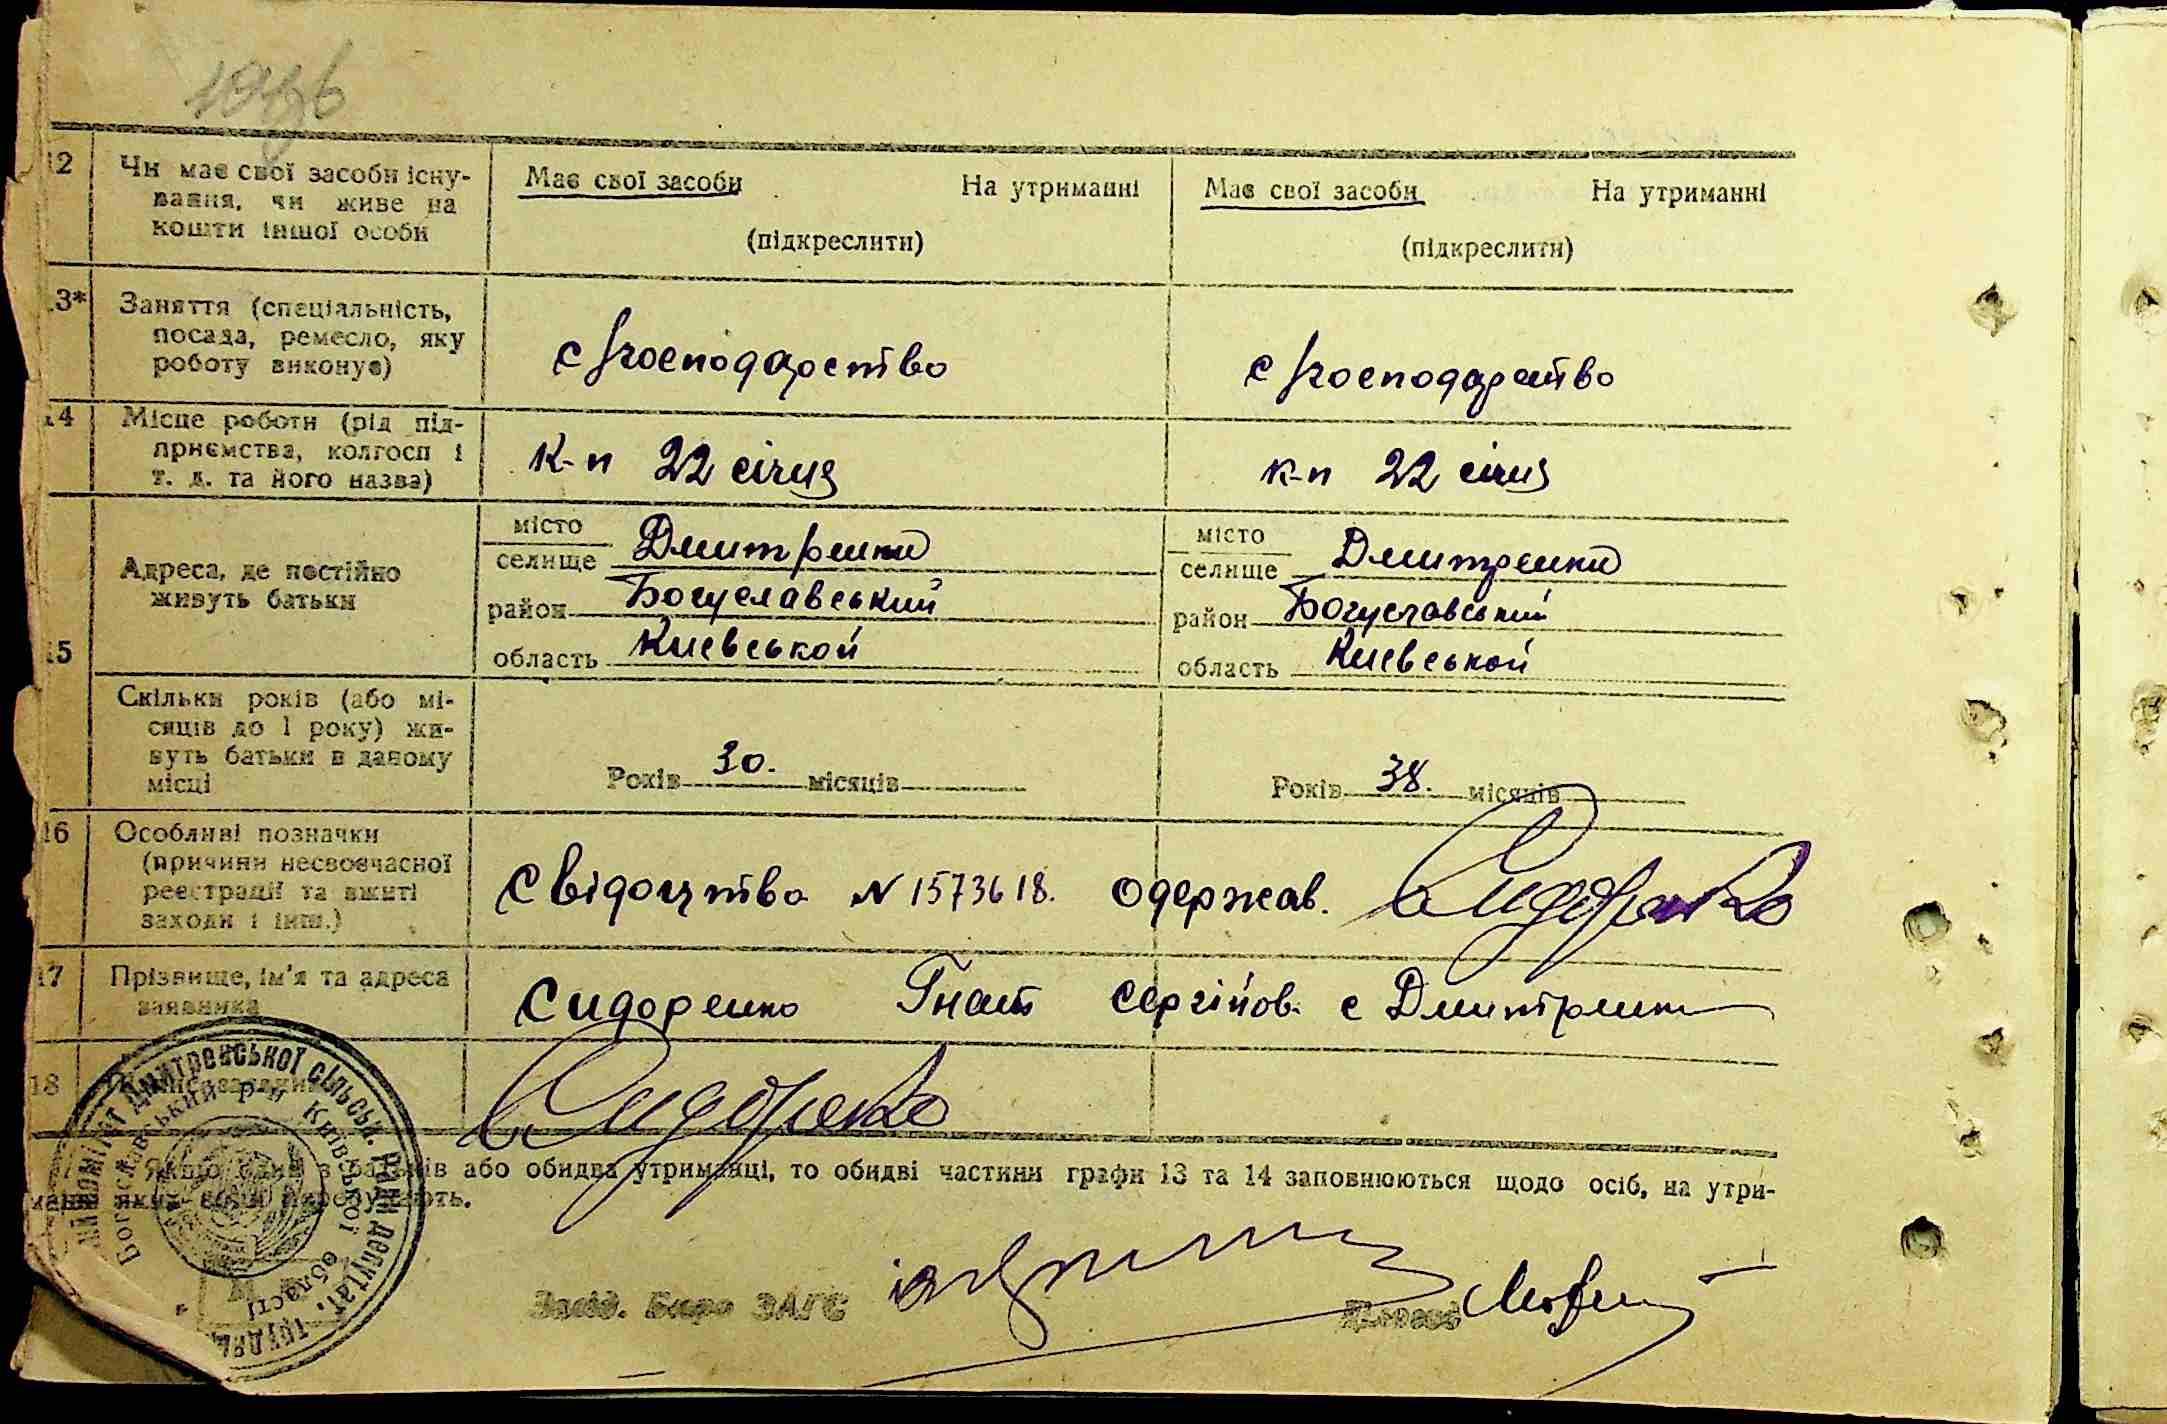 12 Чи має свої засоби існу- Має свої засоби На утриманні Має свої засоби На утриманні
вання, чи живе на
кошти іншої особи (підкреслити) (підкреслити)
13* Заняття (спеціальність,
посада, ремесло, яку с/господарство с/господарство
роботу виконує)
14 Місце роботи (рід під-
приємства, колгосп і к-п 22 січня к-п 22 січня
т. д. та його назва)
місто місто
селище Дмитренки селище Дмитренки
Адреса, де постійно
живуть батьки
район Богуславський район Богуславський
15 область Киевськой область Киевськой
Скільки років (або мі-
сяців до 1 року) жи-
вуть батьки в даному
місці Років 30. місяців Років 38. місяців
16 Особливі позначки
(причини несвоєчасної
реєстрації та вжиті Свідоцтво N 1573618. одержав. Сидоренко
заходи і інш.)
17 Прізвище, ім'я та адреса
заявника Сидоренко Гнат Сергійов. с Дмитренки
18 Сидоренко
Дмитренської сільськ. Ради депутат. трудящ
Богуславський р-н Київської області
Якщо один з батьків або обидва утриманці, то обидві частини графи 13 та 14 заповнюються щодо осіб, на утри-
манні яких вони перебувають.
Завід. Бюро ЗАГС Діловод